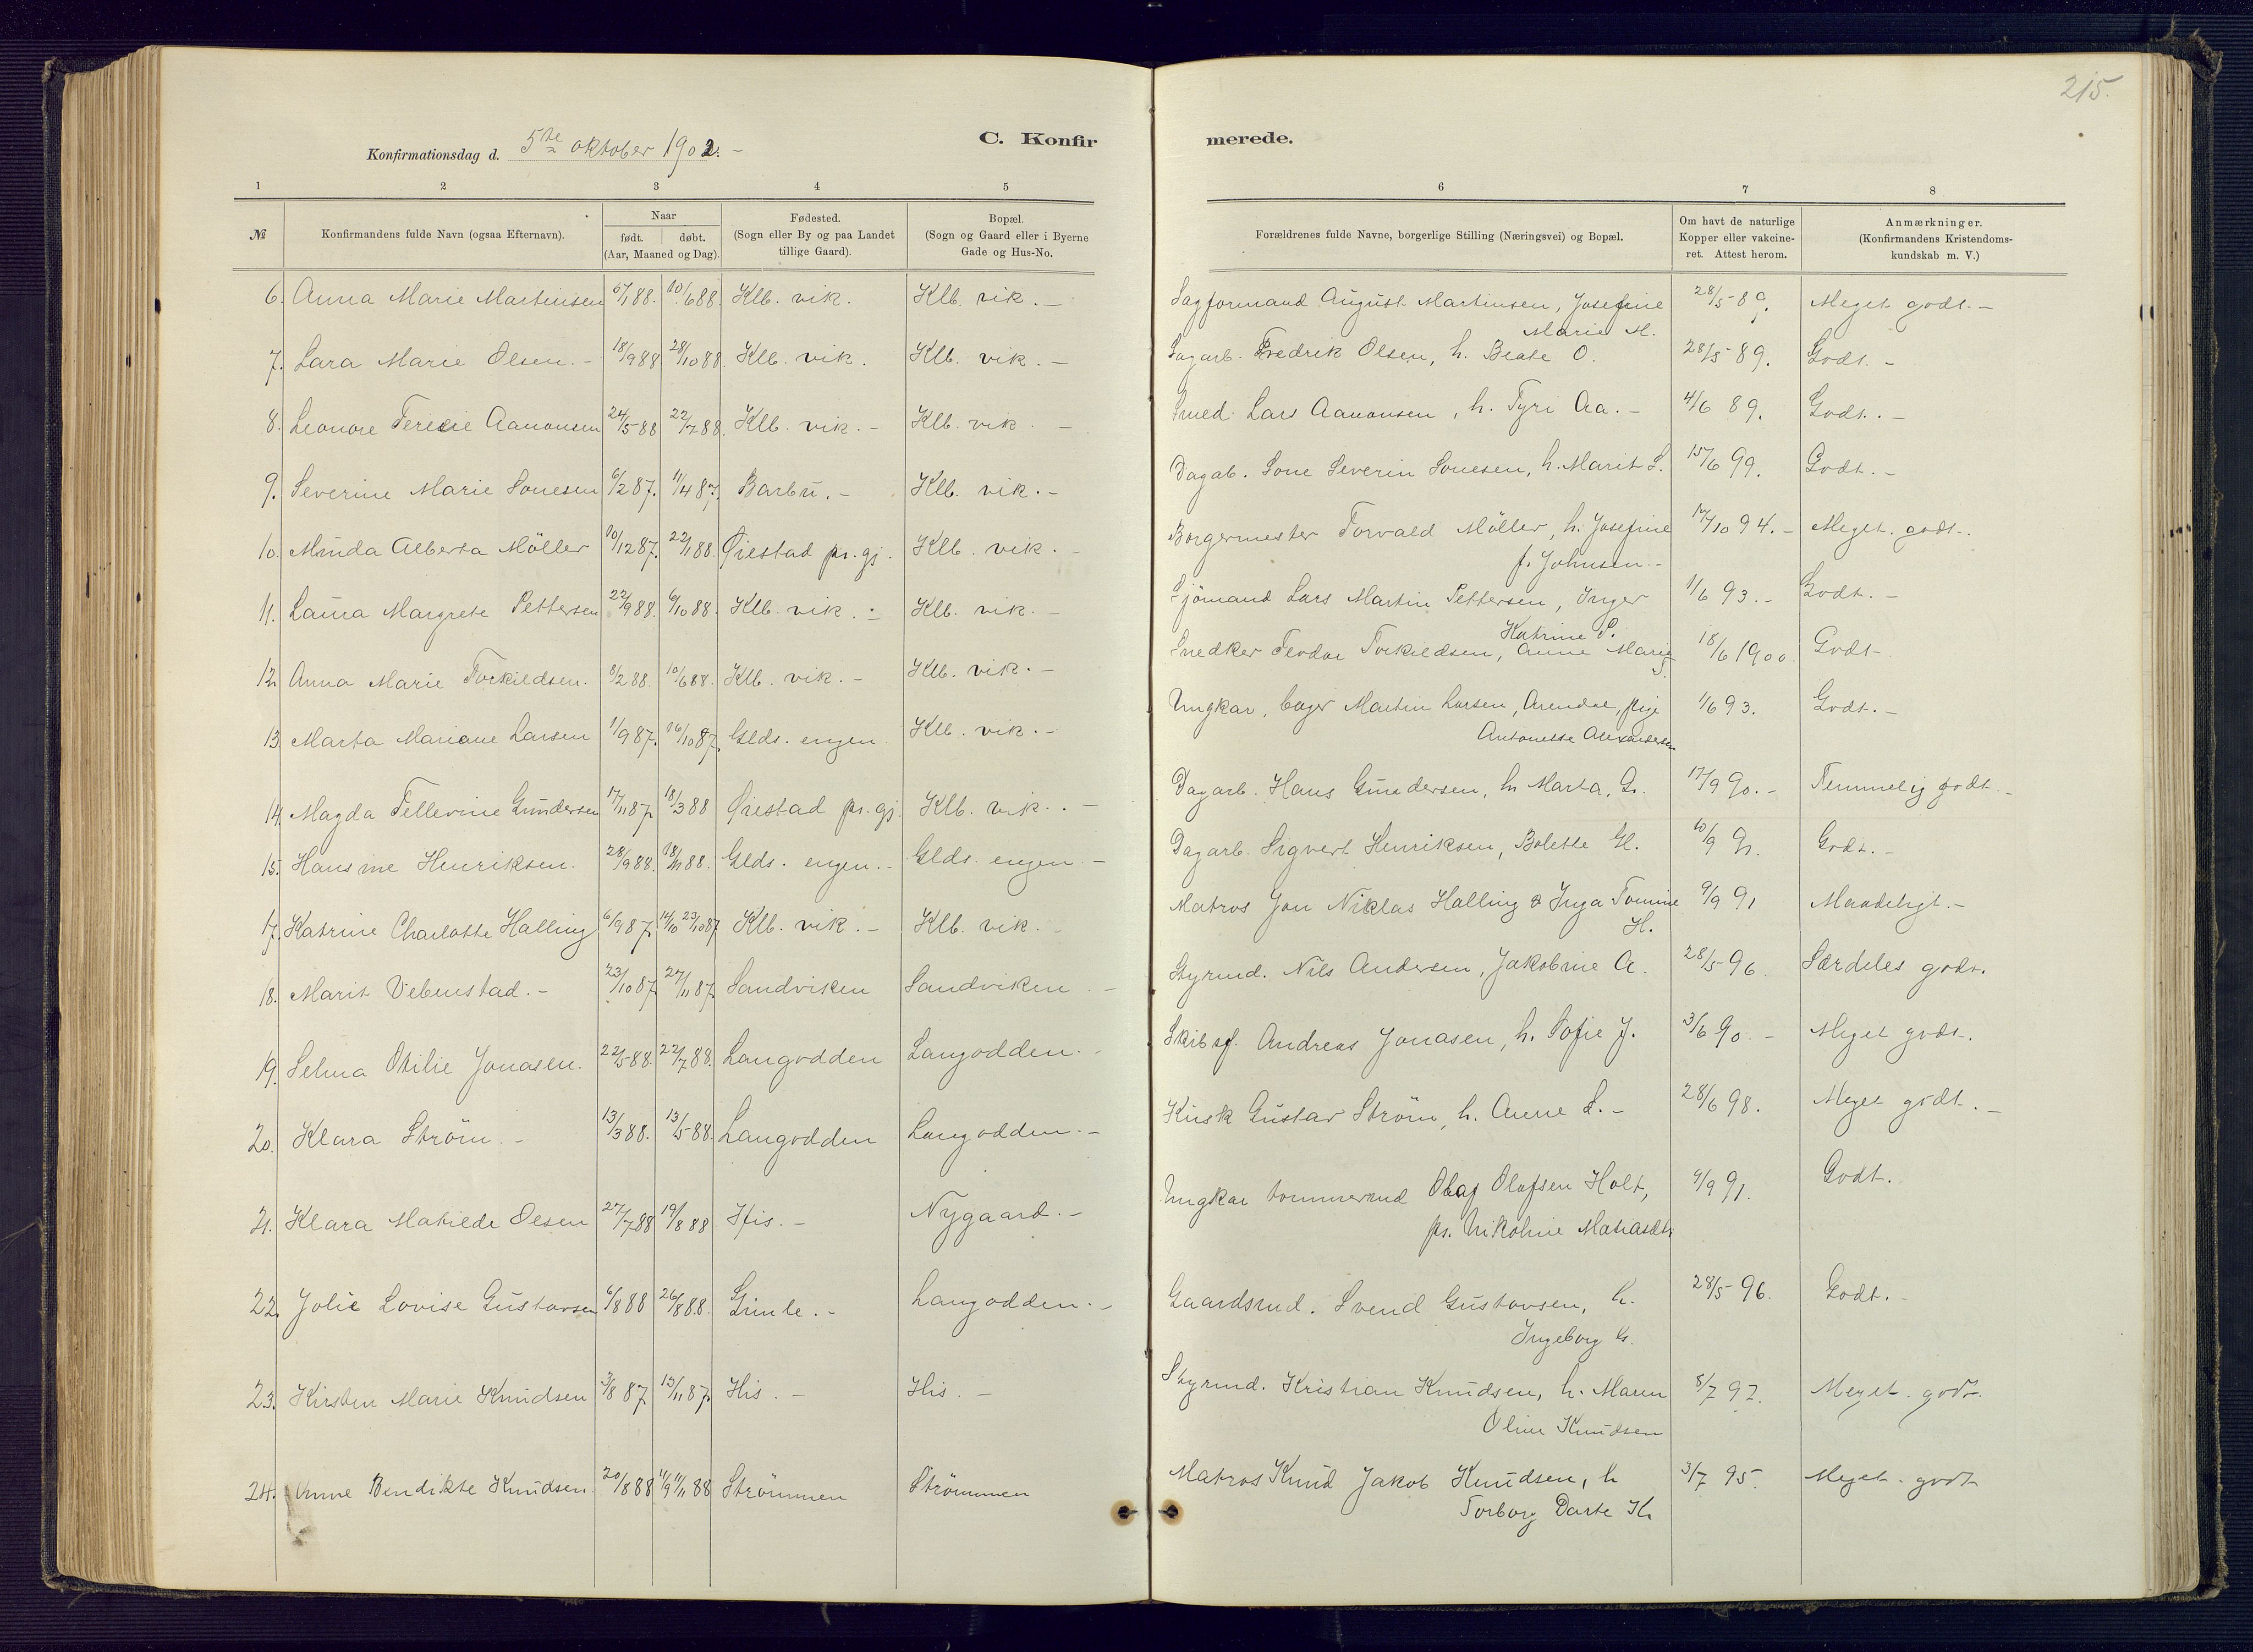 215.
Konfirmationsdag d. 5te oktober 1902. -
C. Konfirmerede.
1 2 3 4 5 6 7 8
№ Konfirmandens fulde Navn (ogsaa Efternavn). Naar født. døbt. (Aar, Maaned og Dag). Fødested. (Sogn eller By og paa Landet tillige Gaard). Bopæl. (Sogn og Gaard eller i Byerne Gade og Hus-No. Forældrenes fulde Navne, borgerlige Stilling (Næringsvei) og Bopæl. Om havt de naturlige Kopper eller vakcineret. Attest herom. Anmærkninger. (Konfirmandens Kristendomskundskab m. V.)
6. Anna Marie Martinsen 6/1 88. 10/6 88. Klb. vik. Klb. vik. - Sagformand August Martinsen, Josefine 28/5 89. Meget godt. -
Marie M.
7. Lara Marie Olsen. - 18/9 88 28/10 88. Klb. vik. Klb. vik. - Sagarb. Fredrik Olsen, h. Beate O. 28/5 89. Godt. -
8. Leonore Aanonsen 24/5 88 22/7 88. Klb. vik. - Klb. vik. - Smed Lars Aanonsen, h. Tyri Aa. - 4/6 89. Godt. -
9. Severine Marie Sonesen 6/2 87. 11/4 87. Barbu. - Klb. vik. - Dagab. Sone Severin Sonesen, h. Marit S. 15/6 99. Godt. -
10. Minda Alberta Möller 10/12 87. 22/1 88. Øiestad pr. gj. Klb. vik. - Borgermester Torvald Möller, h. Josefine 17/10 94. - Meget godt.
f. Johnsen -
11. Laura Margrete Pettersen 22/9 88. 6/10 88. Klb. vik. - Klb. vik. - Sjömand Lars Martin Pettersen, Inger 1/6 93. - Godt. -
Katrine P.
12. Anna Marie Torkildsen. 8/2 88. 10/6 88. Klb. vik. - Klb. vik. - Snedker Teodor Torkildsen, Anne Marie 18/6 1900. Godt -
13. Marta Mariane Larsen 1/9 87. 16/10 87. Glds. engen Klb. vik. - Ungkar, bager Martin Larsen, Arendal, pige 1/6 93. Godt. -
Antonette Alexandersen
14. Magda Tellevine Gundersen 17/11 87. 18/3 88 Øiestad pr. gj. Klb. vik. - Dagarb. Hans Gundersen, h. Marta, G. 17/9 90. - Temmelig godt. -
15. Hansine Henriksen. 28/9 88. 18/11 88. Glds. engen. - Glds. engen - Dagarb. Sigvert Henriksen, Bolette H. 10/9 91. Godt. -
17. Katrine Charlotte Halling 6/9 87. 14/10 23/10 87 Klb. vik. - Klb. vik. - Matros Jon Niklas Halling & Inga Tomine 9/9 91 Maadeligt. -
H.
18. Marit Vebenstad. - 23/10 87. 27/11 87. Sandviken Sandviken - Styrmd. Nils Andersen, Jakobine A. 28/5 96. Særdeles godt.
19. Selma Otilie Jonasen. 22/5 88. 22/7 88. Langodden Langodden. - Skibsf. Andreas Jonasen, h. Sofie J. 3/6 90. - Meget godt.
20. Klara Ström. - 13/3 88. 13/5 88. Langodden Langodden. - Kusk Gustav Ström, h. Anne S. - 28/6 98. Meget godt. -
21. Klara Matilde Olsen 27/7 88 19/8 88 His. - Nygaard. - Ungkar tømmermd Olaf Olafsen Holt, 9/9 91. Godt.
ps. Nikoline Matiasdt.
22. Jolie Lovise Gustavsen 6/8 88 26/8 88. Gimle. - Langodden. - Gaardsmd. Svend Gustavsen, h. 28/5 96. Godt. -
Ingeborg G.
23. Kirsten Marie Knudsen 3/8 87. 13/11 87. His. - His. - Styrmd. Kristian Knudsen, h. Maren 8/7 92. Meget godt.
Oline Knudsen
24. Anne Bendikte Knudsen 20/8 88 11/11 88 Strömmen Strömmen Matros Knud Jakob Knudsen, h 3/7 95. Meget godt
Torborg Dorte K.